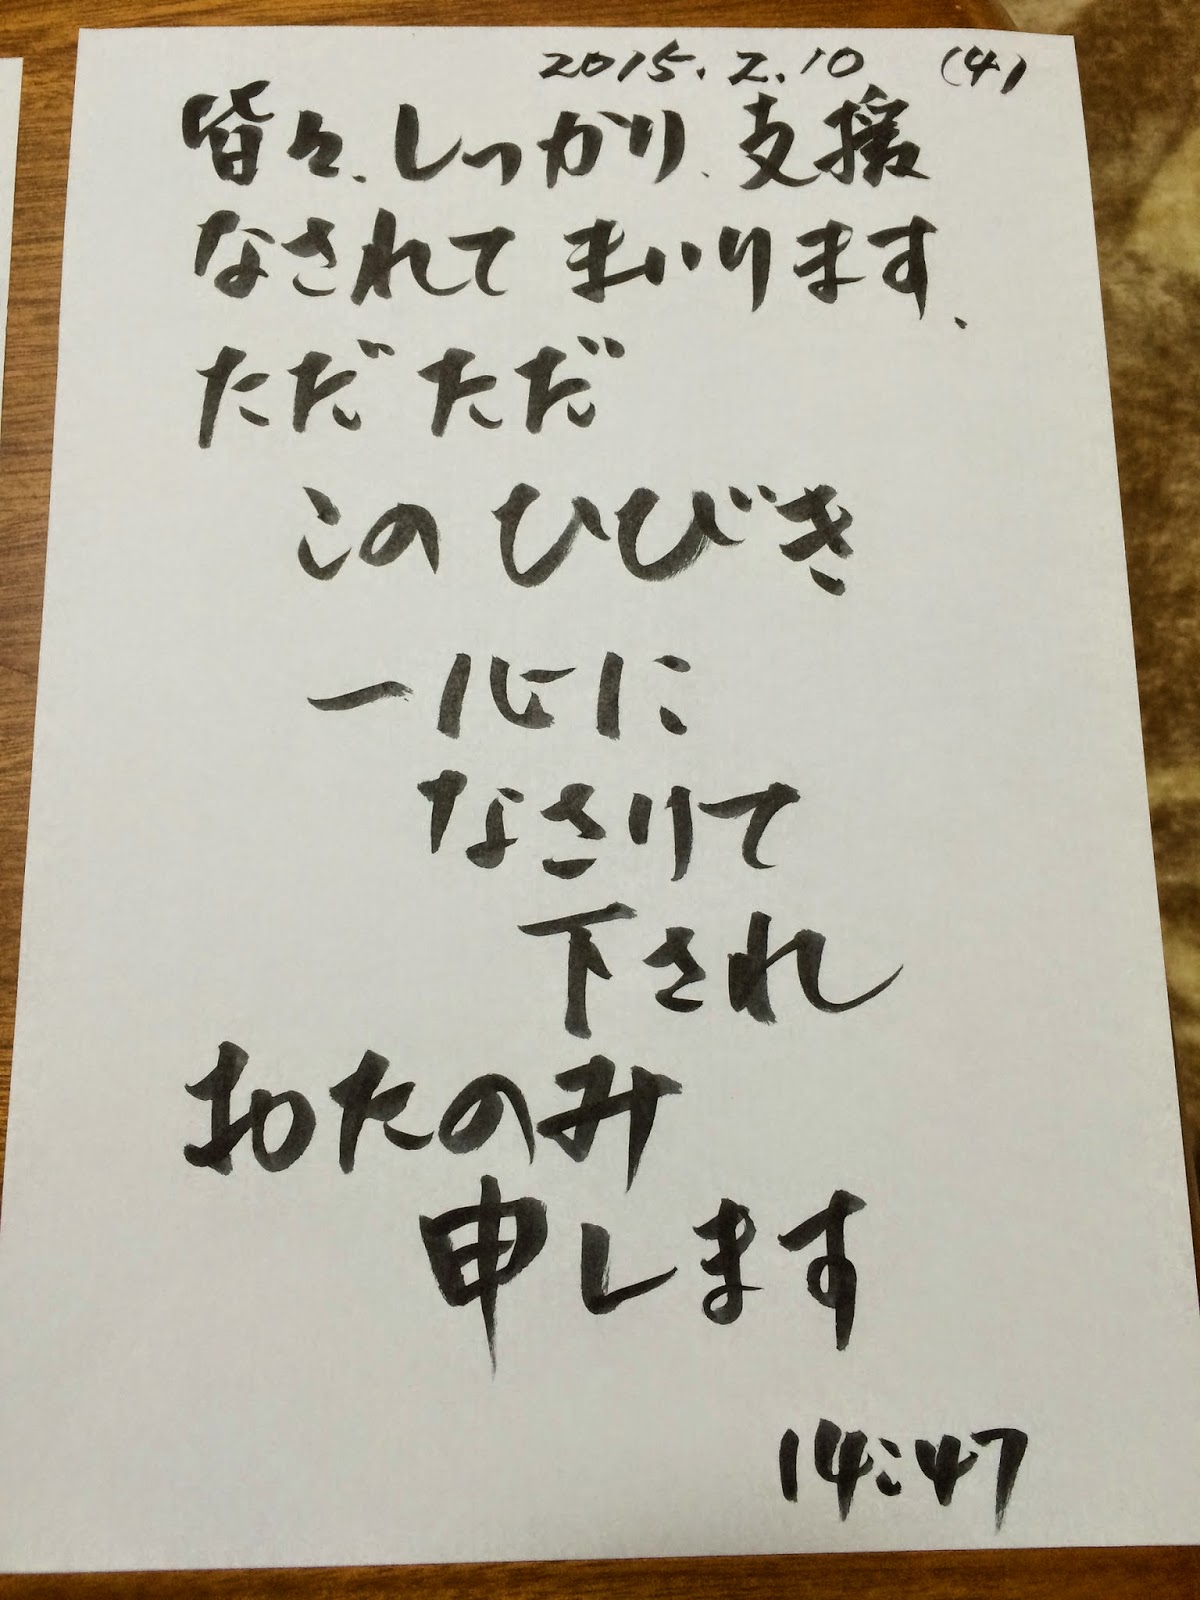 2015.2.10 (4)
皆々、しっかり、支援
なされて まいります、
ただ ただ
この ひびき
一心に
なさりて
下され
おたのみ
申します
14:47